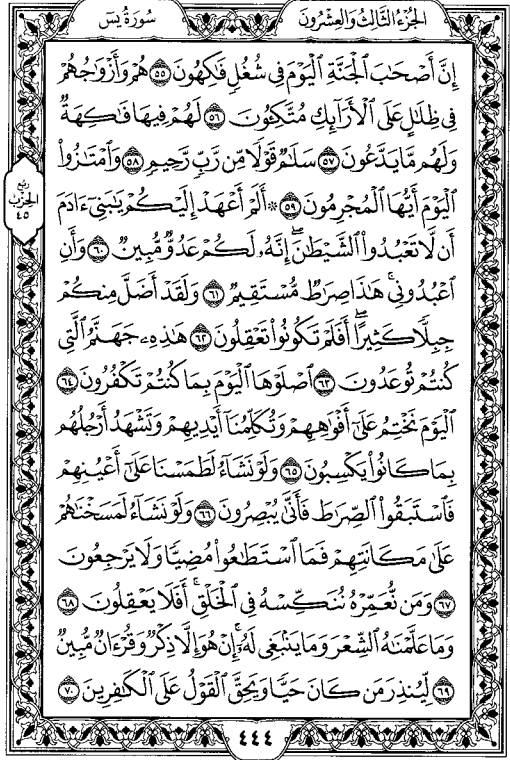 سُورَةُ يسٓ
الجُزْءُ الثَّالِثُ وَالعِشْرُونَ
إِنَّ أَصْحَٰبَ ٱلْجَنَّةِ ٱلْيَوْمَ فِى شُغُلٍ فَٰكِهُونَ ٥٥ هُمْ وَأَزْوَٰجُهُمْ
فِى ظِلَٰلٍ عَلَى ٱلْأَرَآئِكِ مُتَّكِـُٔونَ ٥٦ لَهُمْ فِيهَا فَٰكِهَةٌ
وَلَهُم مَّا يَدَّعُونَ ٥٧ سَلَٰمٌ قَوْلًا مِّن رَّبٍّ رَّحِيمٍ ٥٨ وَٱمْتَٰزُوا۟
ٱلْيَوْمَ أَيُّهَا ٱلْمُجْرِمُونَ ٥٩ ۞ أَلَمْ أَعْهَدْ إِلَيْكُمْ يَٰبَنِىٓ ءَادَمَ
أَن لَّا تَعْبُدُوا۟ ٱلشَّيْطَٰنَ ۖ إِنَّهُۥ لَكُمْ عَدُوٌّ مُّبِينٌ ٦٠ وَأَنِ
ٱعْبُدُونِى ۚ هَٰذَا صِرَٰطٌ مُّسْتَقِيمٌ ٦١ وَلَقَدْ أَضَلَّ مِنكُمْ
جِبِلًّا كَثِيرًا ۖ أَفَلَمْ تَكُونُوا۟ تَعْقِلُونَ ٦٢ هَٰذِهِۦ جَهَنَّمُ ٱلَّتِى
كُنتُمْ تُوعَدُونَ ٦٣ ٱصْلَوْهَا ٱلْيَوْمَ بِمَا كُنتُمْ تَكْفُرُونَ ٦٤
ٱلْيَوْمَ نَخْتِمُ عَلَىٰٓ أَفْوَٰهِهِمْ وَتُكَلِّمُنَآ أَيْدِيهِمْ وَتَشْهَدُ أَرْجُلُهُم
بِمَا كَانُوا۟ يَكْسِبُونَ ٦٥ وَلَوْ نَشَآءُ لَطَمَسْنَا عَلَىٰٓ أَعْيُنِهِمْ
فَٱسْتَبَقُوا۟ ٱلصِّرَٰطَ فَأَنَّىٰ يُبْصِرُونَ ٦٦ وَلَوْ نَشَآءُ لَمَسَخْنَٰهُمْ
عَلَىٰ مَكَانَتِهِمْ فَمَا ٱسْتَطَٰعُوا۟ مُضِيًّا وَلَا يَرْجِعُونَ
٦٧ وَمَن نُّعَمِّرْهُ نُنَكِّسْهُ فِى ٱلْخَلْقِ ۖ أَفَلَا يَعْقِلُونَ ٦٨
وَمَا عَلَّمْنَٰهُ ٱلشِّعْرَ وَمَا يَنۢبَغِى لَهُۥٓ ۚ إِنْ هُوَ إِلَّا ذِكْرٌ وَقُرْءَانٌ مُّبِينٌ
٦٩ لِّيُنذِرَ مَن كَانَ حَيًّا وَيَحِقَّ ٱلْقَوْلُ عَلَى ٱلْكَٰفِرِينَ ٧٠
ربع
الحزب
٤٥
٤٤٤